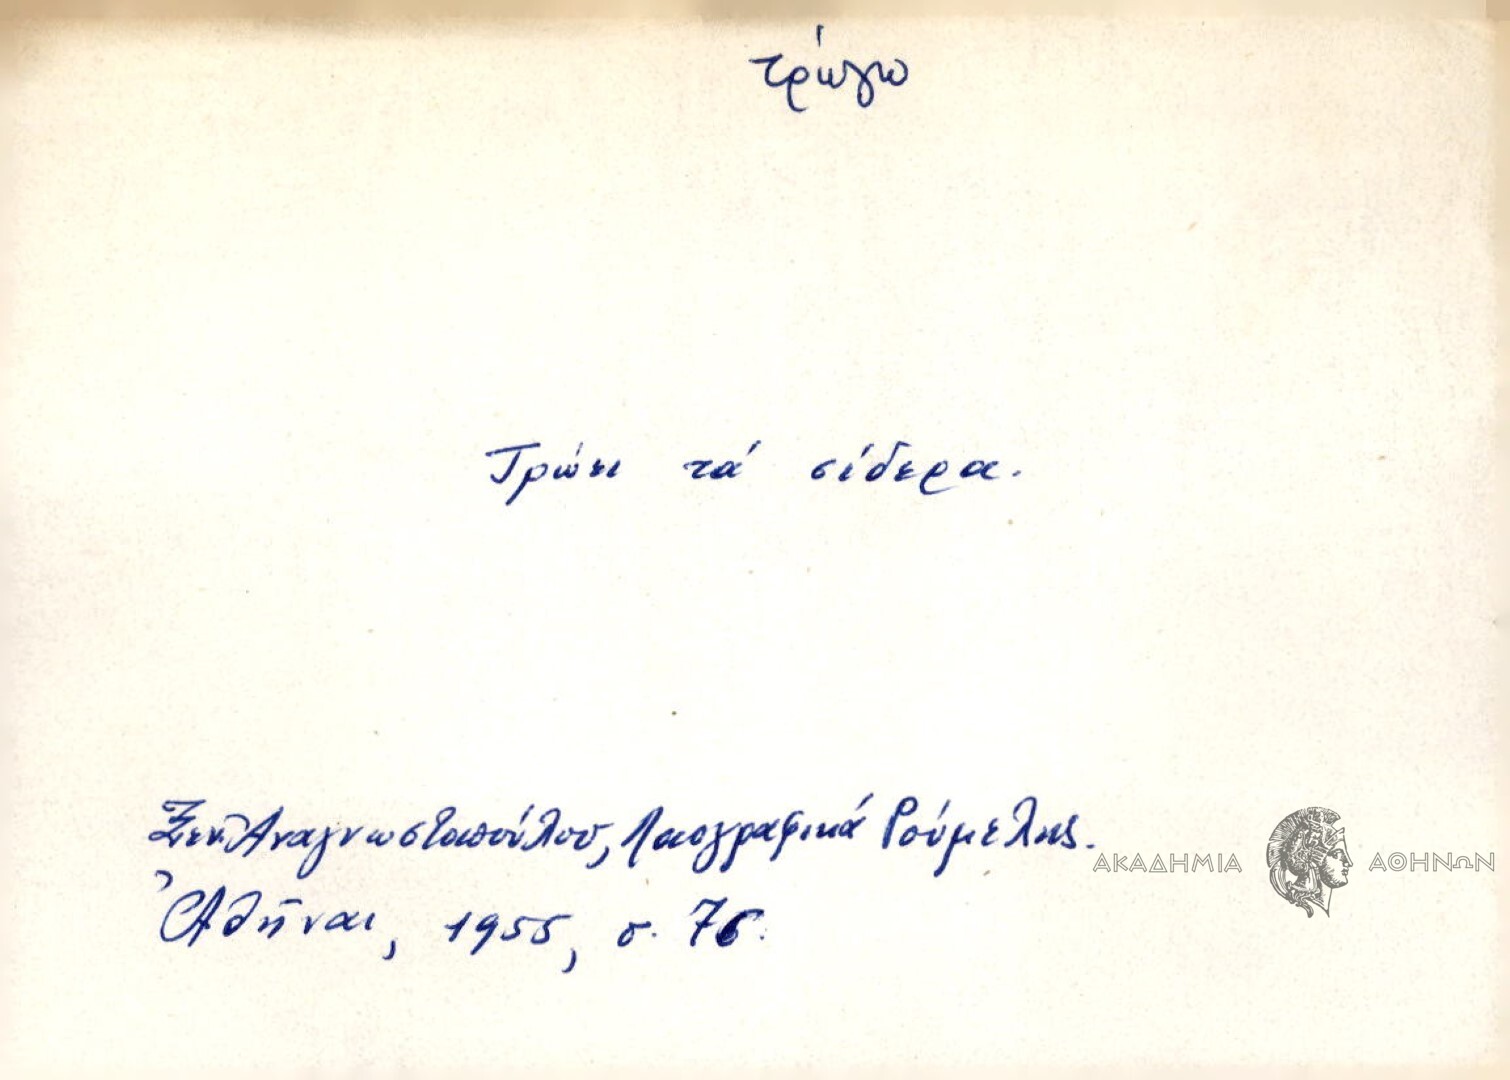 τρώγω
Τρώει τά σίδερα.
Ξεν. Αναγνωστοπούλου, Λαογραφικά Ρούμελης.
Ἀθῆναι, 1955, σ. 76.
ΑΚΑΔΗΜΙΑ ΑΘΗΝΩΝ